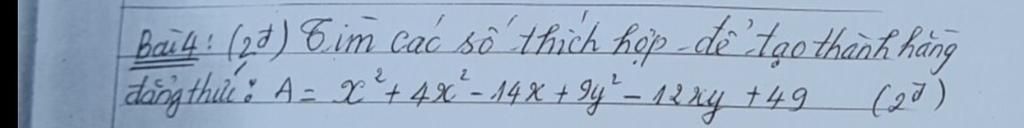 Bài 4: (2đ) Tìm các số thích hợp để tạo thành hằng
đẳng thức: A = x² + 4x² - 14x + 9y² - 12xy + 49 (2đ)